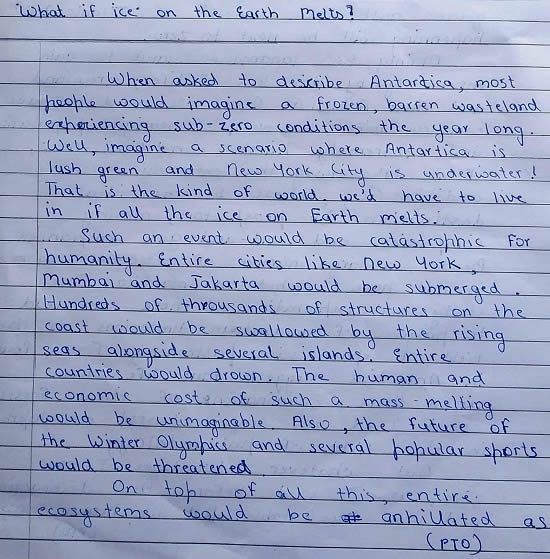 What if ice on the Earth Melts?
When asked to describe Antartica, most
people would imagine a frozen, barren wasteland
experiencing sub-zero conditions the year long.
Well, imagine a scenario where Antartica is
lush green and New York City is underwater!
That is the kind of world we'd have to live
in if all the ice on Earth melts.
Such an event would be catastrophic for
humanity. Entire cities like New York,
Mumbai and Jakarta would be submerged.
Hundreds of throusands of structures on the
coast would be swallowed by the rising
seas alongside several islands. Entire
countries would drown. The human and
economic cost of such a mass-melting
would be unimaginable. Also, the future of
the Winter Olympics and several popular sports
would be threatened.
On top of all this, entire
ecosystems would be anhillated as
(PTO)